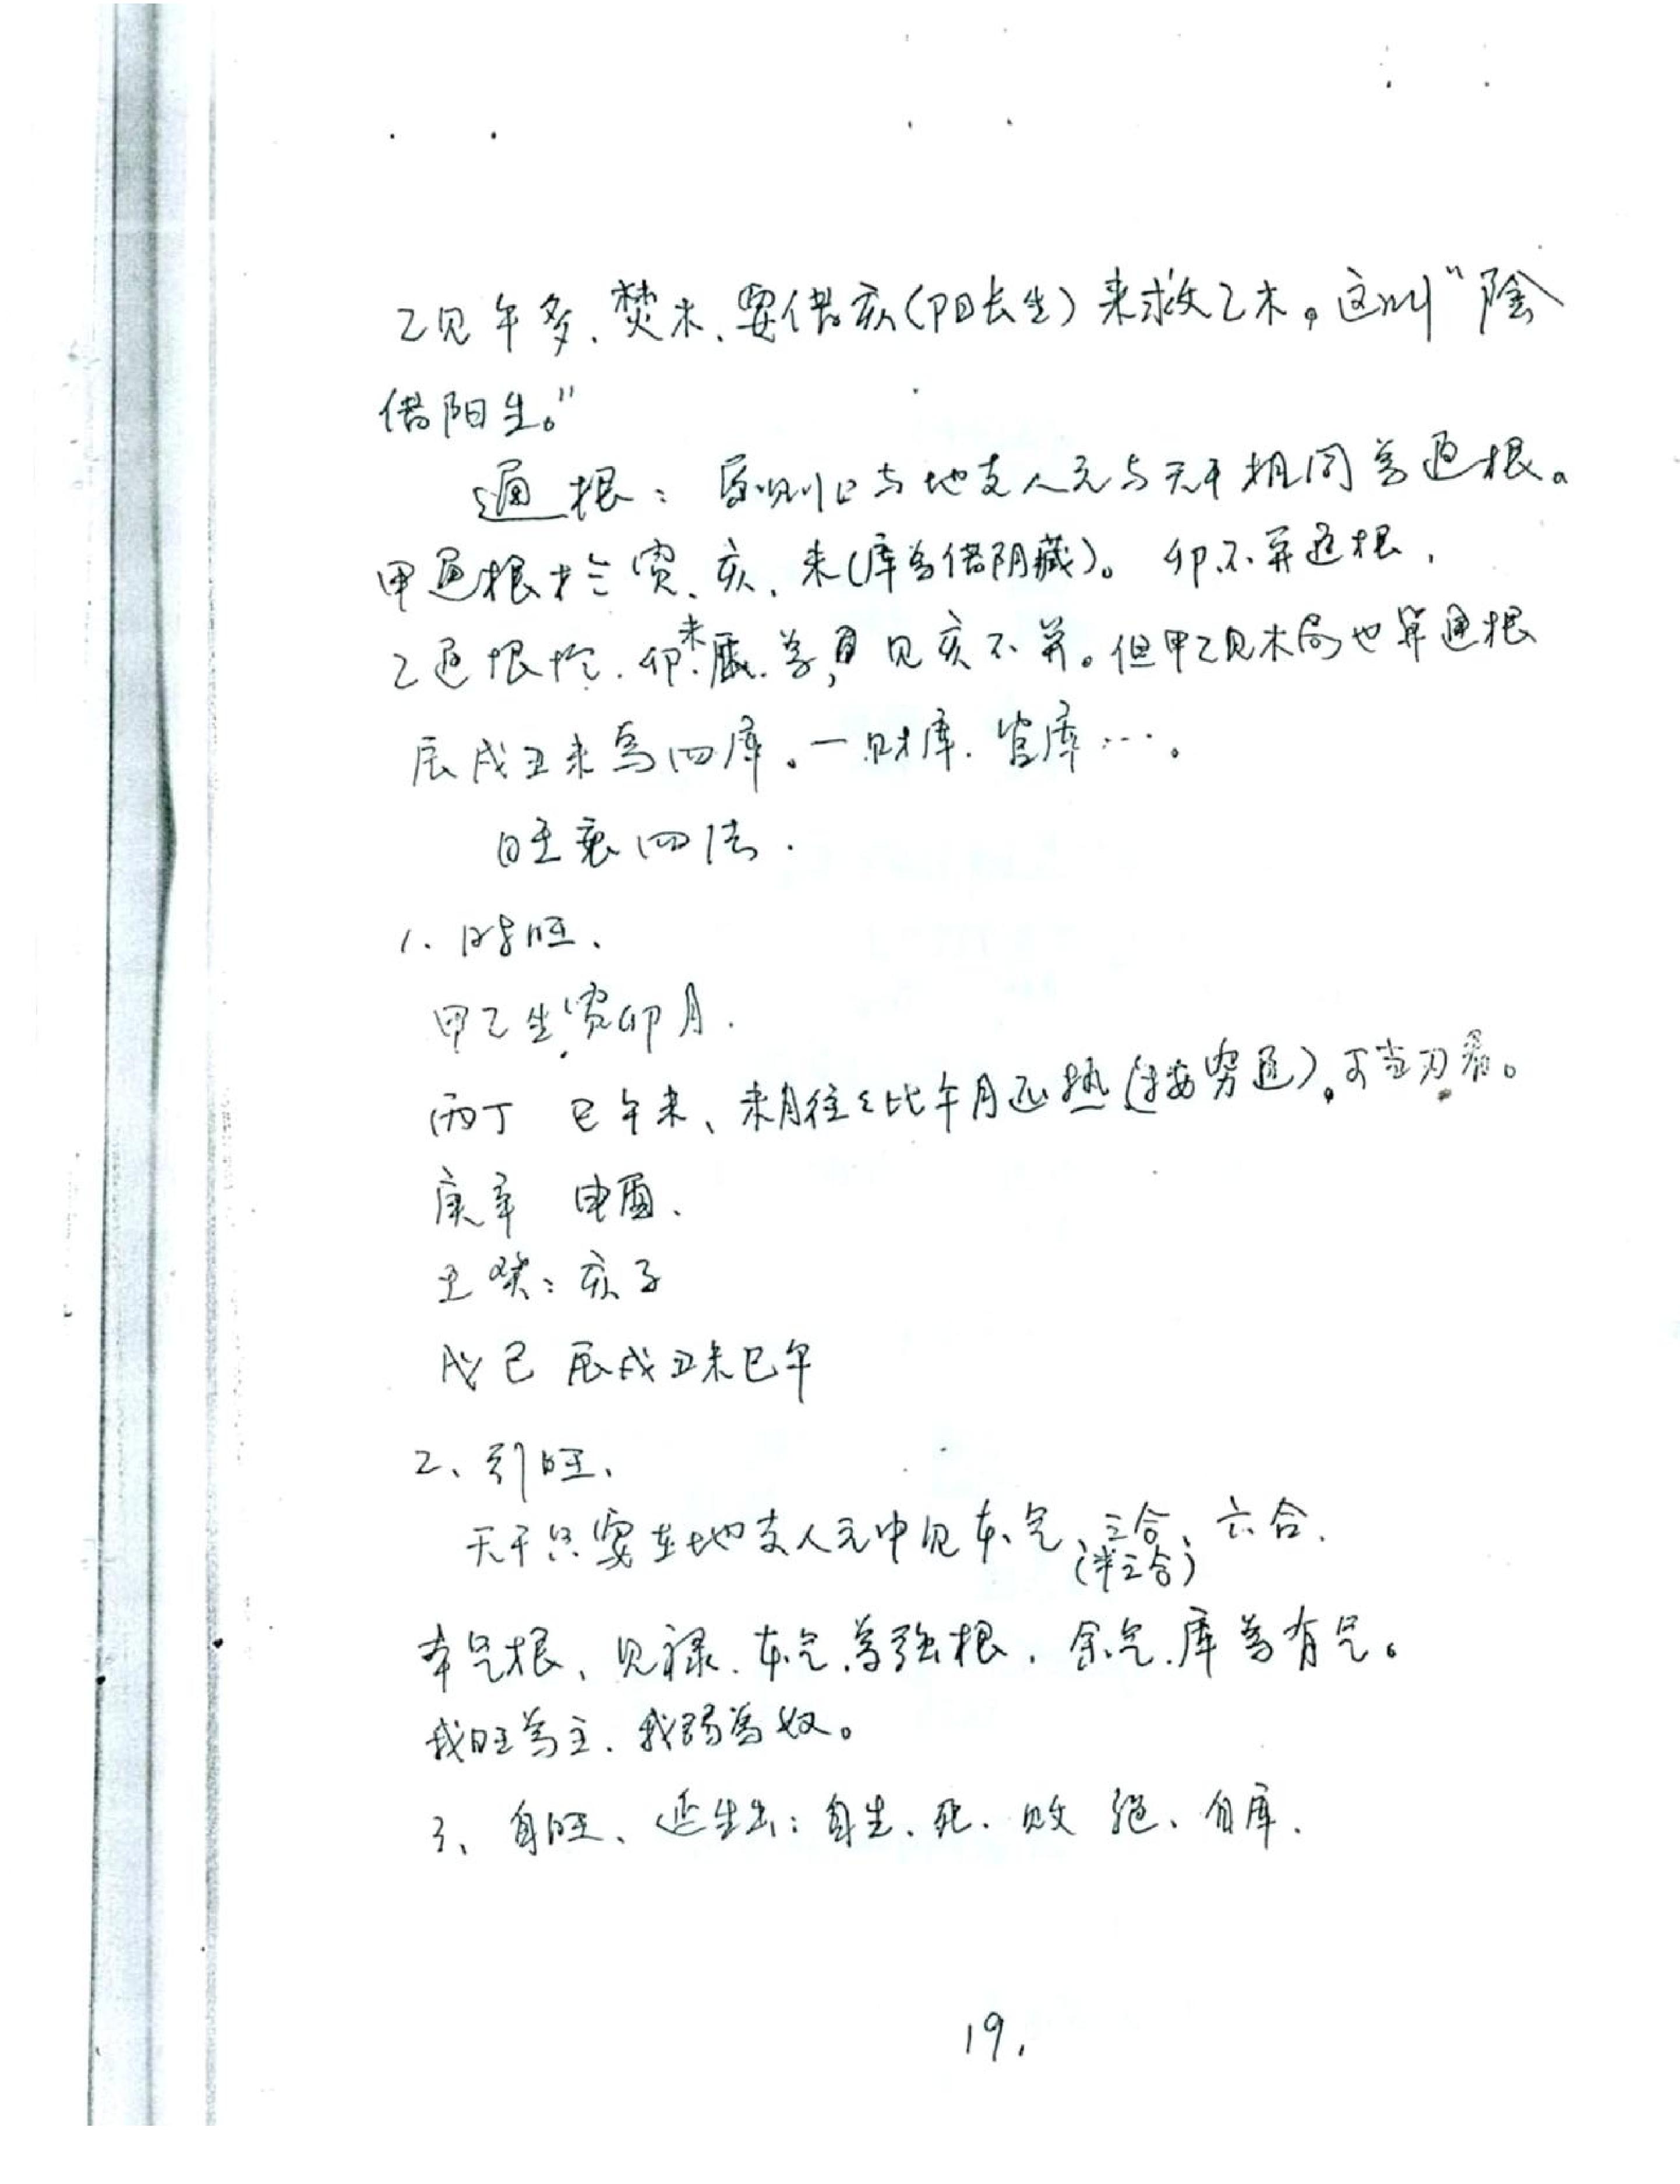 乙见午多、焚木、要借亥(阳长生)来救乙木。这叫"陰
借阳生。"
通根：原则上与地支人元与天干相同為通根。
甲通根於寅、亥、未(库為借阴藏)。卯不算通根，
乙通根於.卯.未.辰.為, 見亥不算。但甲乙见木局也算通根
辰戌丑未為四库。一财库.官库…。
旺衰四法.
1. 时旺、
甲乙生寅卯月.
丙丁 巳午未、未月往往比午月还热(按穷通)。可当刃看。
庚辛 申酉、
壬癸：亥子
戊己 辰戌丑未巳午
2、引旺、
天干只要在地支人元中见本气、三合、六合.
(半三合)
本气根、见禄.本气.為强根.余气.库為有气。
我旺為主.我弱為奴。
3、自旺、 自生.死.败 绝、自库.
19.